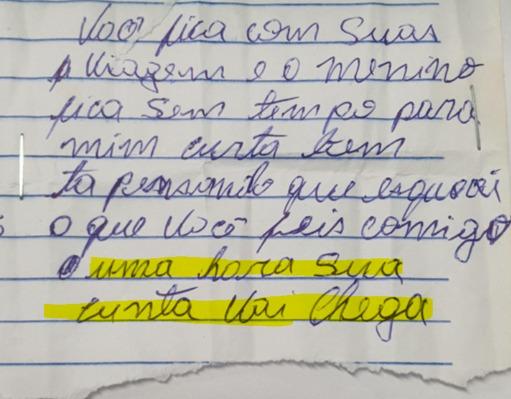 você fica com suas
viagem e o menino
fica sem tempo para
mim curta bem
ta pensando que esqueci
o que você feis comigo
uma hora sua
cunta vai chega